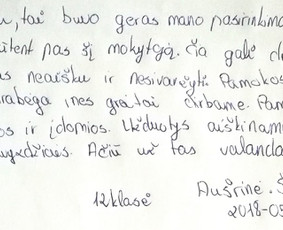 , tai buvo geras mano pasirinkima
būtent pas šį mokytoją. Čia gali d
neaišku ir nesivaržyti. Pamokos
prabėga ines greitai dirbame. Pam
os ir įdomios. Užduotys aiškinam
pavyzdžiais. Ačiū už tas valanda
12 klasė Aušrinė. Š
2018-05